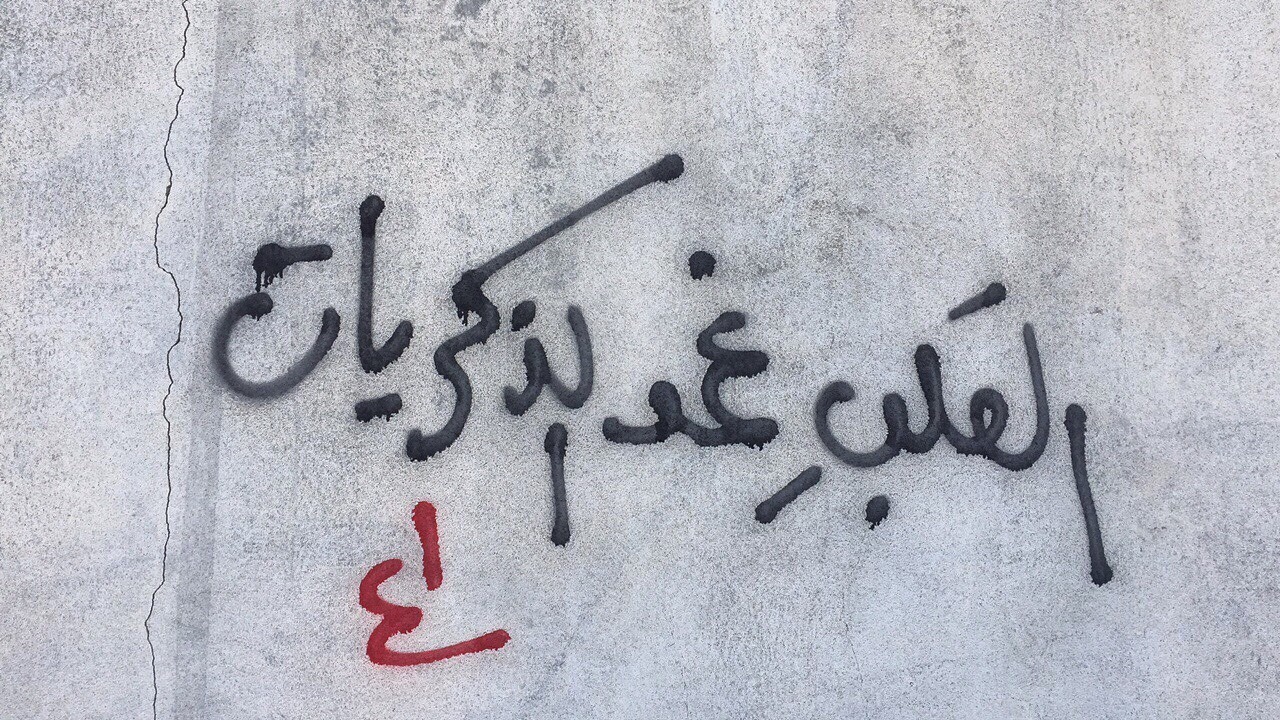 القلبِ غمد الذكريات
ا ع